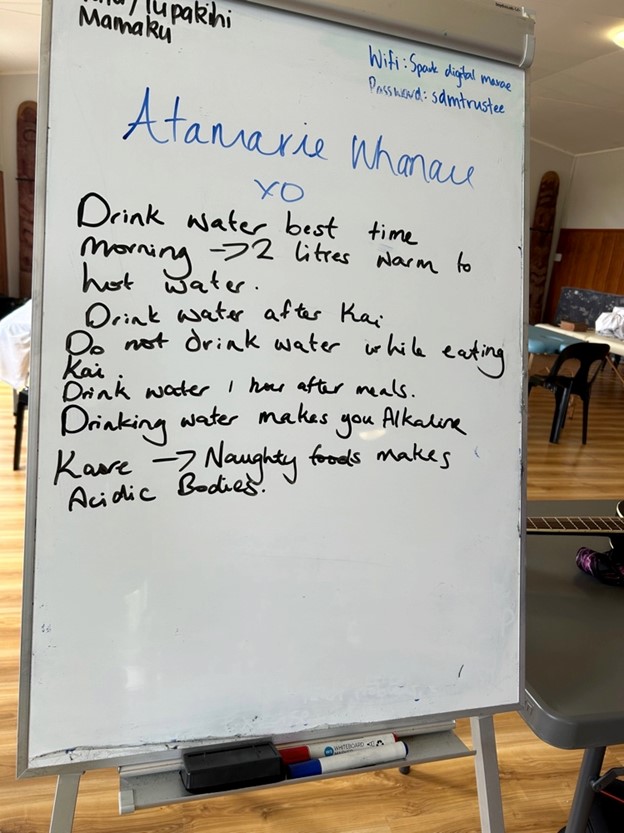 /Tupakihi
Mamaku
Wifi: Spark digital marae
Password: sdmtrustee
Atamarie Whanau
XO
Drink water best time
morning → 2 litres warm to
hot water.
Drink water after Kai
Do not drink water while eating
Kai.
Drink water 1 hour after meals.
Drinking water makes you Alkaline
Kaore → Naughty foods makes
Acidic Bodies.
WHITEBOARD